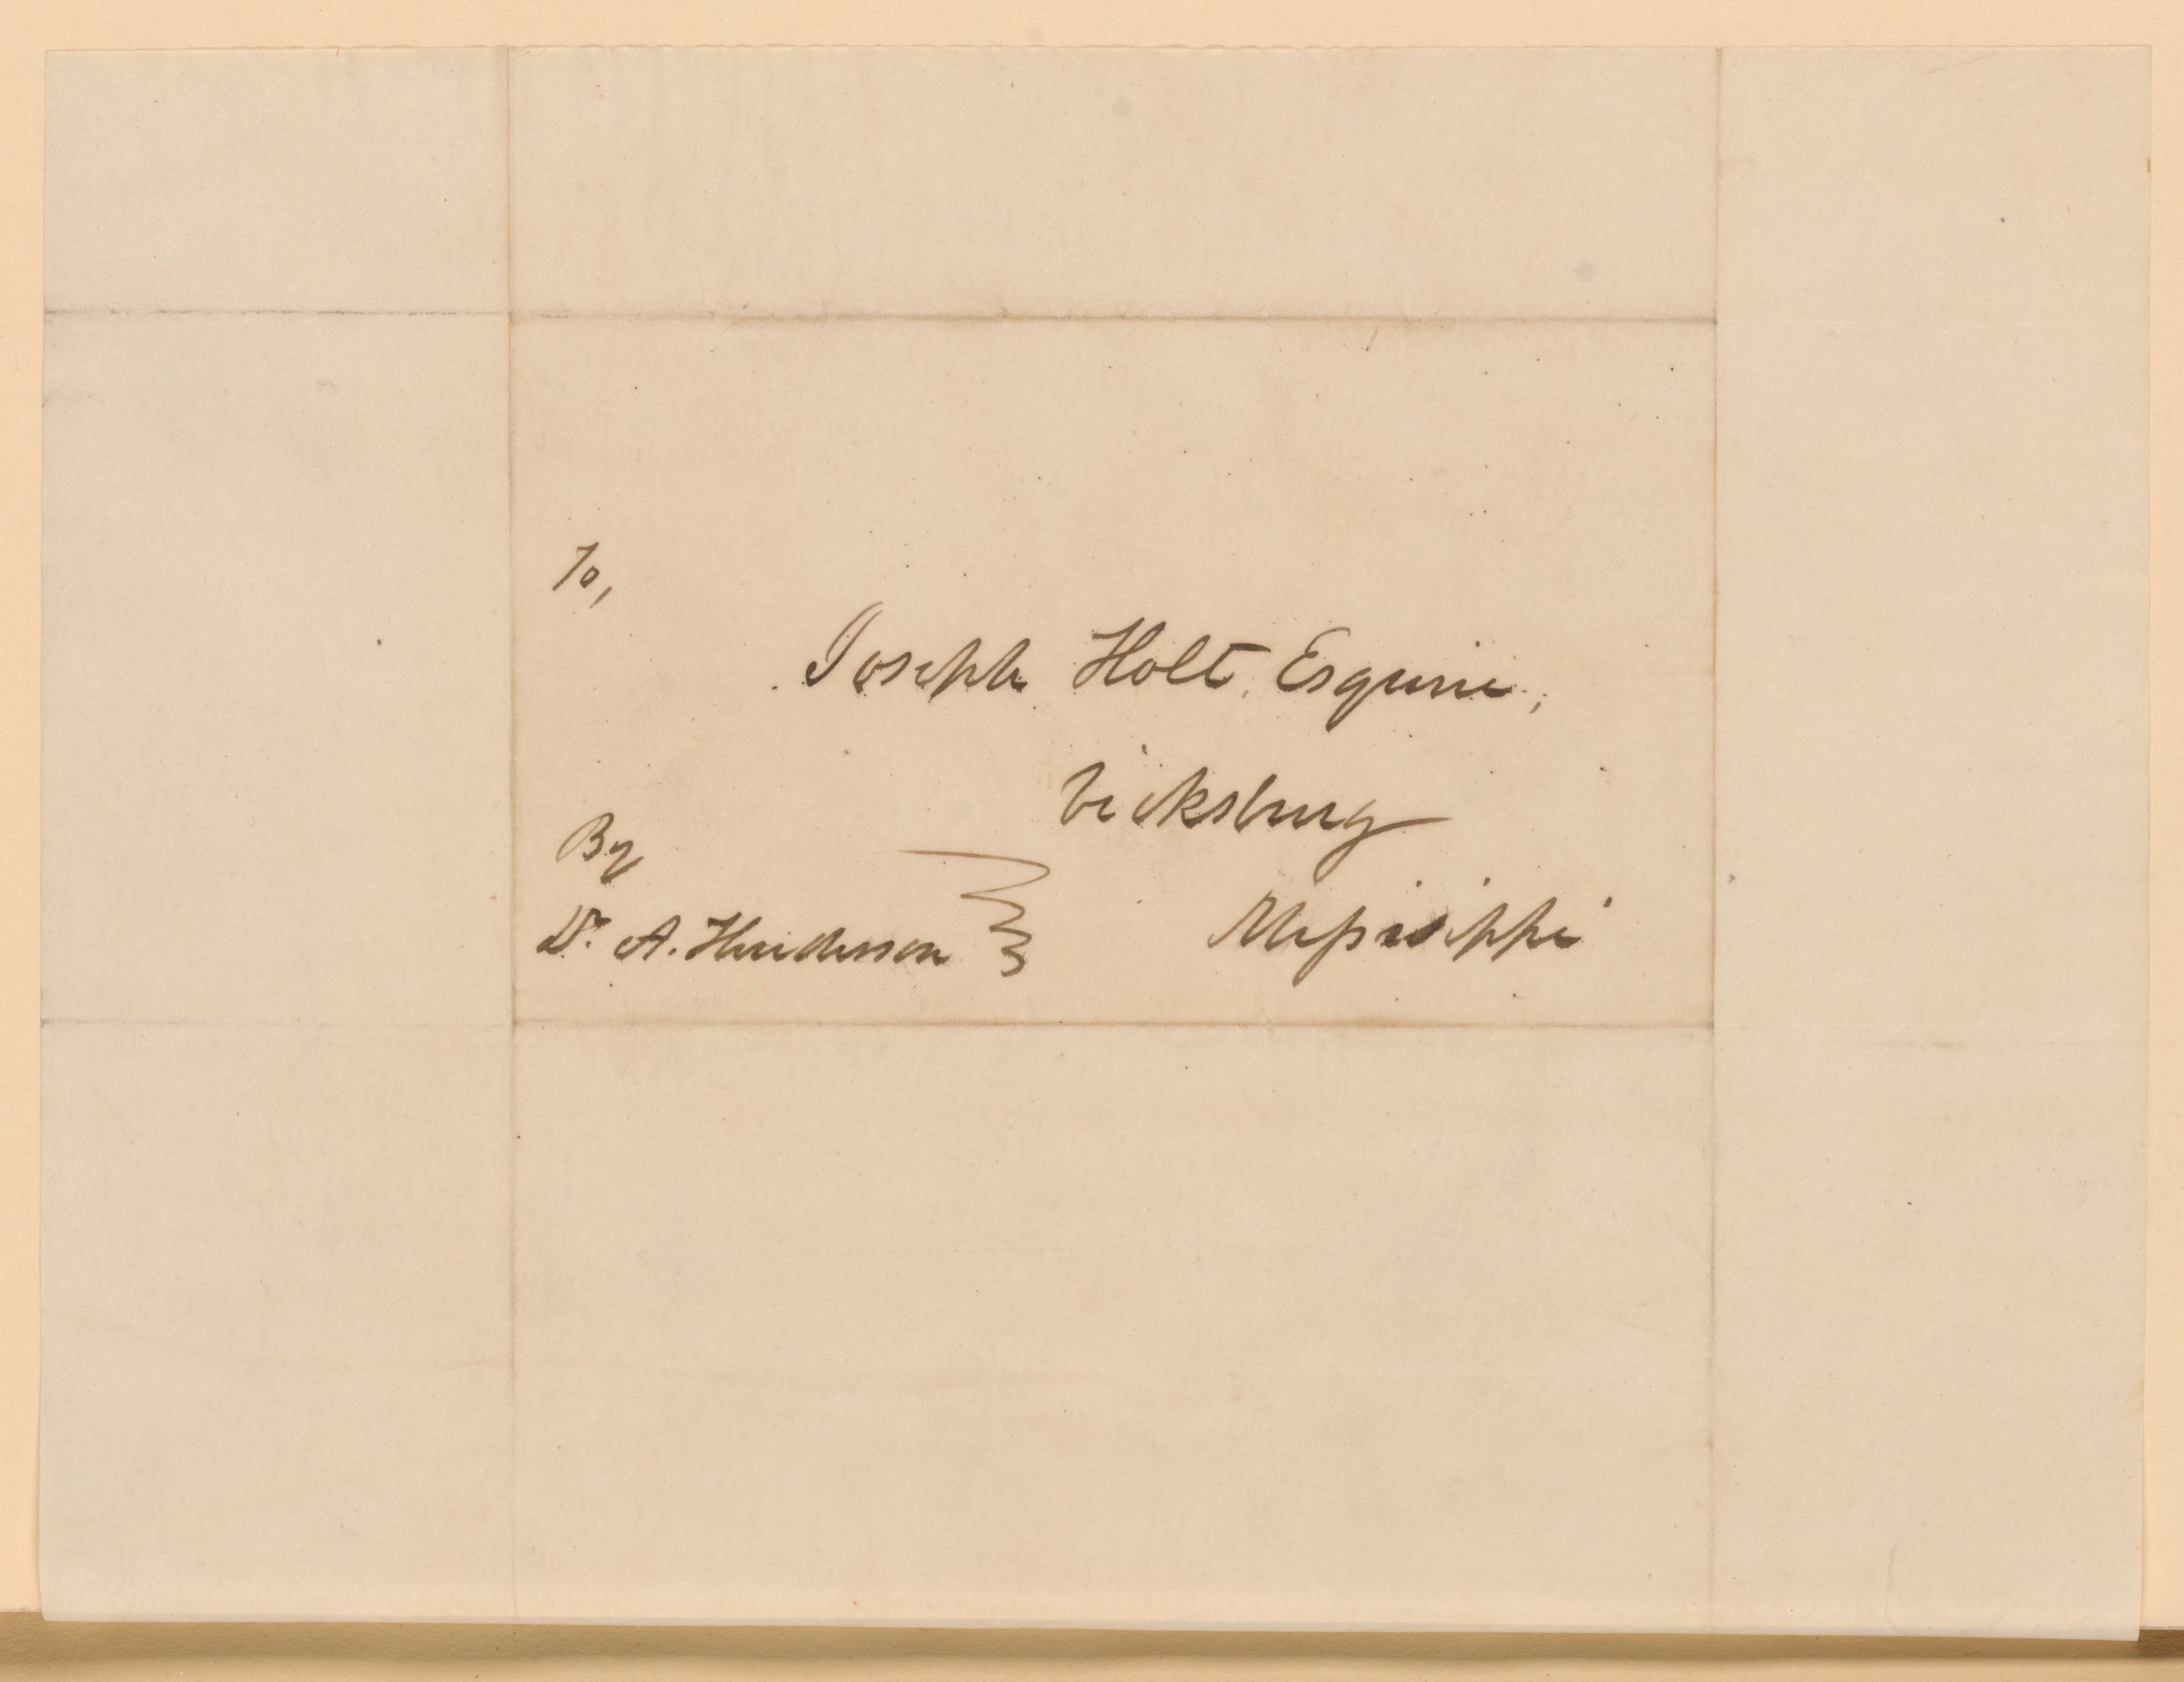 To,
Joseph Holt, Esquire,
Vicksburg
Mississippi
By
Dr. A. Henderson